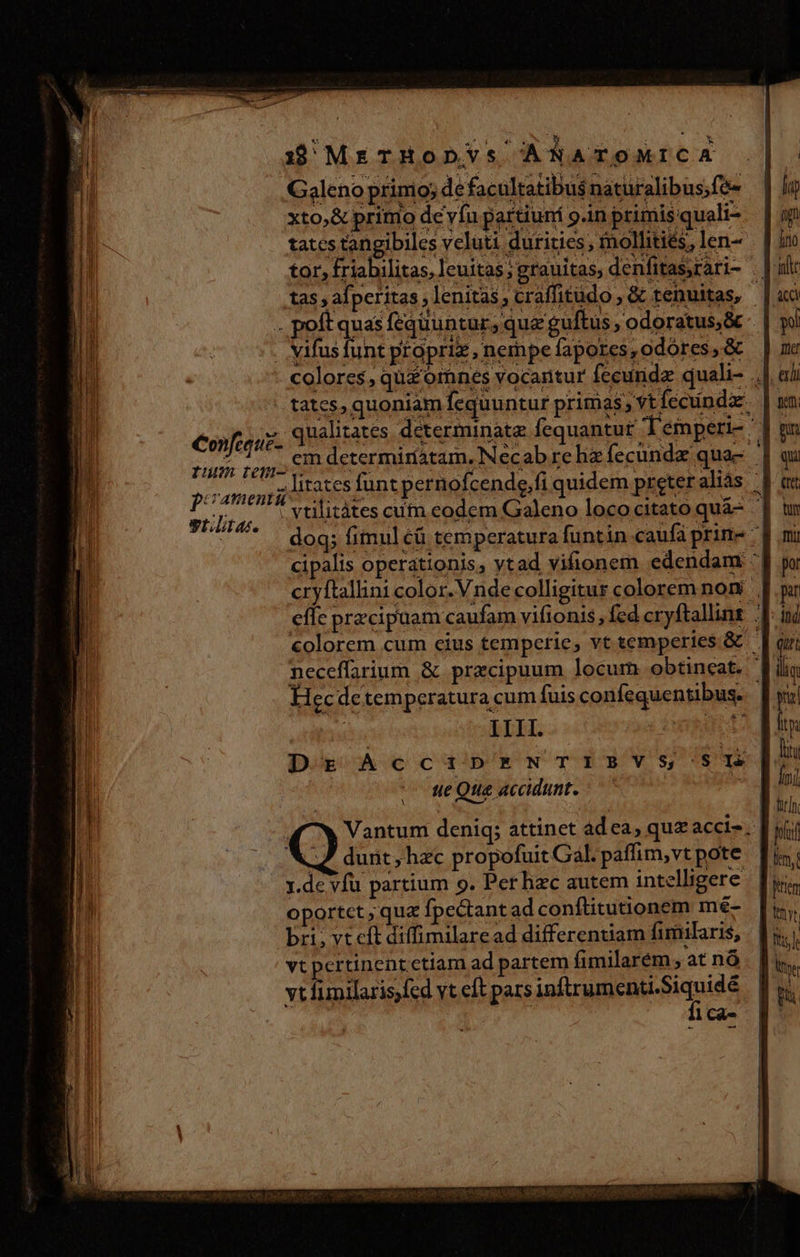 18 METHODVS ANATOMICA
Galeno primo, de facultatibus naturalibus, ſe-
xto, & primo de vſu partium 9. in primis quali-
tates tangibiles veluti durities, mollities, len-
tor, friabilitas, leuitas, grauitas, denſitas, rari-
tas, aſperitas, lenitas, craſſitudo, & tenuitas,
poſt quas ſequuntur, quæ guſtus, odoratus, &
viſus ſunt propriæ, nempe ſapores, odores, &
colores, quæ omnes vocantur ſecundæ quali-
tates, quoniam ſequuntur primas, vt ſecundæ
qualitates determinatæ ſequantur Temperi-
em determinatam. Nec ab re hæ ſecundæ qua-
litates ſunt pernoſcendę, ſi quidem pręter alias
vtilitates cum eodem Galeno loco citato quã-
doq; ſimul cũ temperatura ſunt in cauſa prin-
cipalis operationis, vt ad viſionem edendam
cryſtallini color. Vnde colligitur colorem non
eſſe præcipuam cauſam viſionis, ſed cryſtallini
colorem cum eius temperie, vt temperies &
neceſſarium & præcipuum locum obtineat.
Hec de temperatura cum ſuis conſequentibus.
Conſequē-
tium tem-
peramentũ
vtilitas.
IIII.
DE ACCIDENTIBVS, SI-
ue Quæ accidunt.
QVantum deniq; attinet ad ea, quæ acci-
dunt, hæc propoſuit Gal. paſſim, vt pote
1. de vſu partium 9. Per hæc autem intelligere
oportet, quæ ſpectant ad conſtitutionem mē-
bri, vt eſt diſſimilare ad differentiam ſimilaris,
vt pertinent etiam ad partem ſimilarem, at nõ
vt ſimilaris, ſed vt eſt pars inſtrumenti. Siquidē
ſi ca-